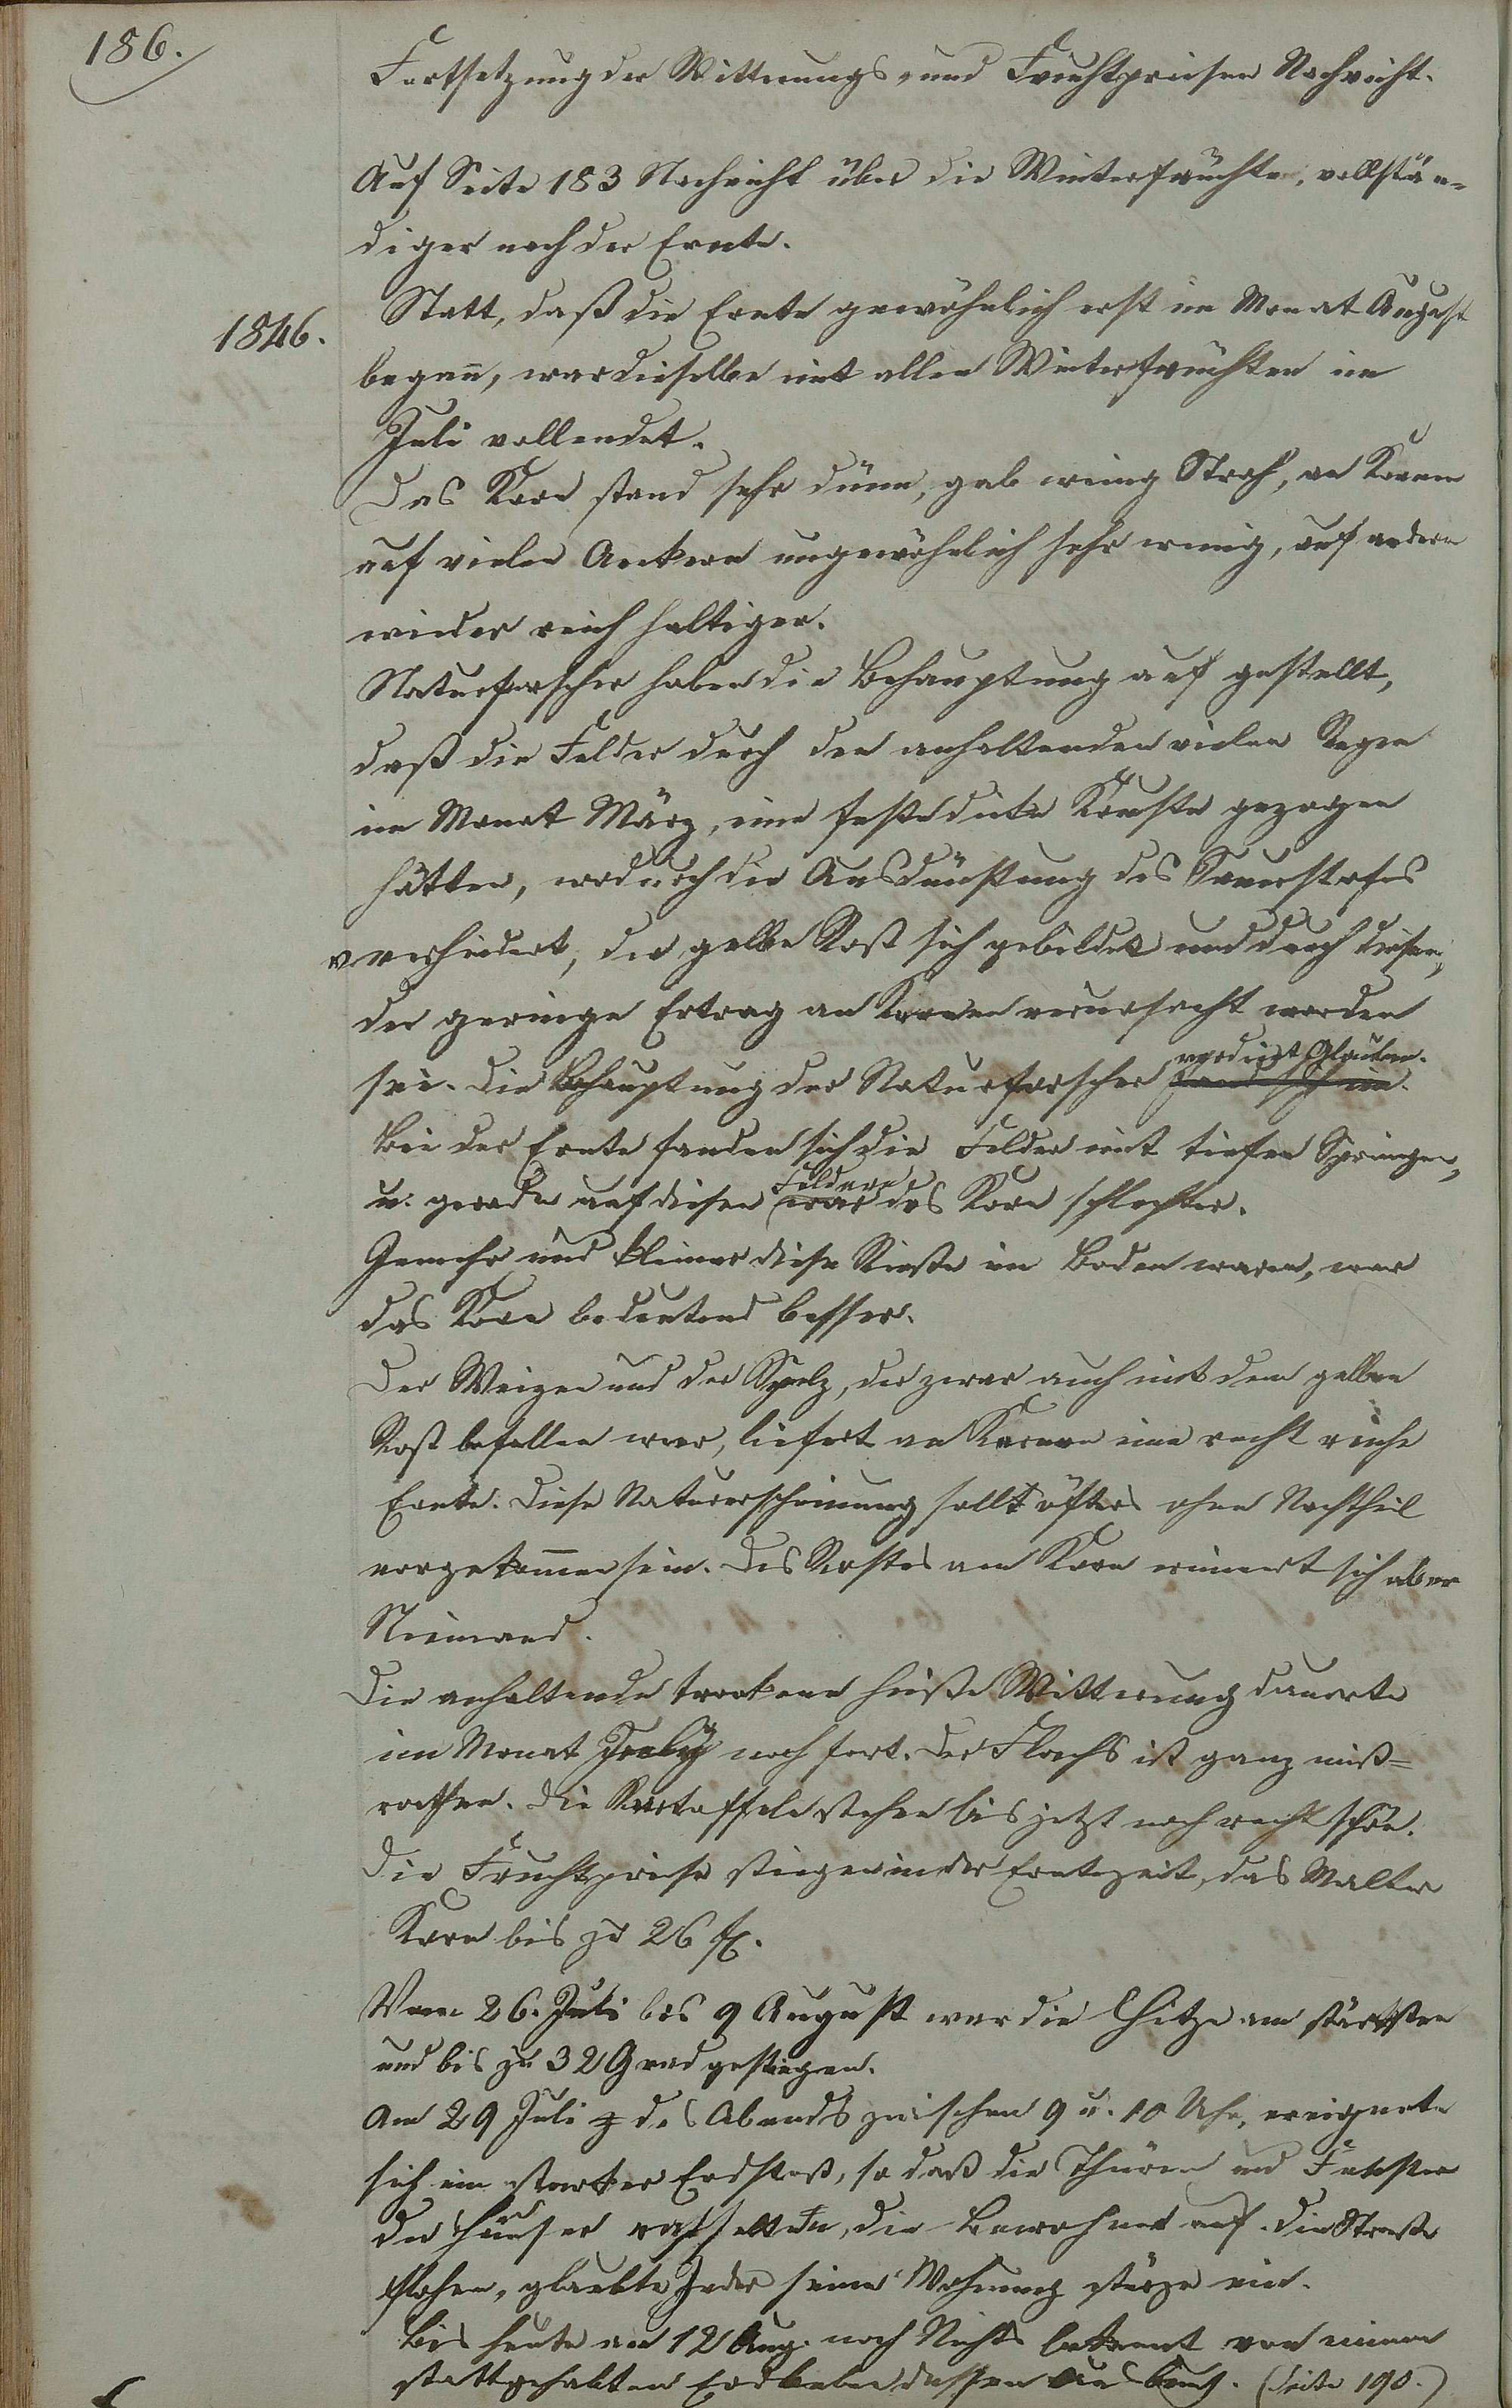 186.
Fortsetzung der Witterungs- und Fruchtpreisen Nachricht.
Auf Seite 183 Nachricht über die Winterfrüchte, vollstän-
diger nach der Ernte.
1846.
Statt, daß die Ernte gewöhnlich erst im Monat August
begann, war dieselbe mit allen Winterfrüchten im
Juli vollendet.
Das Korn stand sehr dünn, gab wenig Stroh, an Körnern
auf vielen Aeckern ungewöhnlich sehr wenig, auf andern
wieder reich haltiger.
Naturforscher haben die Behauptung auf gestellt,
daß die Felder durch den anhaltenden vielen Regen
im Monat März, eine feste dicke Kruste gezogen
hätten, wodurch die Ausdünstung des Sauerstofes
verhindert, der gelbe Rost sich gebildet und durch diesen,
der geringe Ertrag an Körnern verursacht worden
sei. Die Behauptung der Naturforscher verdient Glauben.
Bei der Ernte fanden sich die Felder mit tiefen Sprüngen,
u. gerade auf diesen Feldern war das Korn schlechter.
Je mehr und kleiner diese Rieße im Boden waren, war
das Korn bedeutend besser.
Der Weizen und der Spelz, der zwar auch mit dem gelben
Rost befallen war, liefert an Körnern eine recht reiche
Ernte. Diese Naturerscheinung sollt öfters ohne Nachtheil
vorgekommen sein. Des Rostes am Korn erinnert sich aber
Niemand.
Die anhaltende trockene heiße Witterung dauerte
im Monat July noch fort. Der Flachs ist ganz miß-
rathen. Die Kartoffeln stehen bis jetzt noch recht schön.
Die Fruchtpreise stiegen in der Erntezeit, das Malter
Korn bis zu 26 fl.
Vom 26. Juli bis 9 August war die Hitze am stärksten
und bis zu 32 Grad gestiegen.
Am 29 Juli des Abends zwischen 9 u. 10 Uhr, ereignete
sich ein starker Erdstoß, so daß die Thüren und Fenster
der Häuser rasselten, die Bewohner auf die Straße
flohen, glaubte Jeder seine Wohnung stürze ein.
Bis heute am 12 Aug. noch Nichts bekannt von einem
stattgehabten Erdbeben dessen Ausbruch. (Seite 190.)